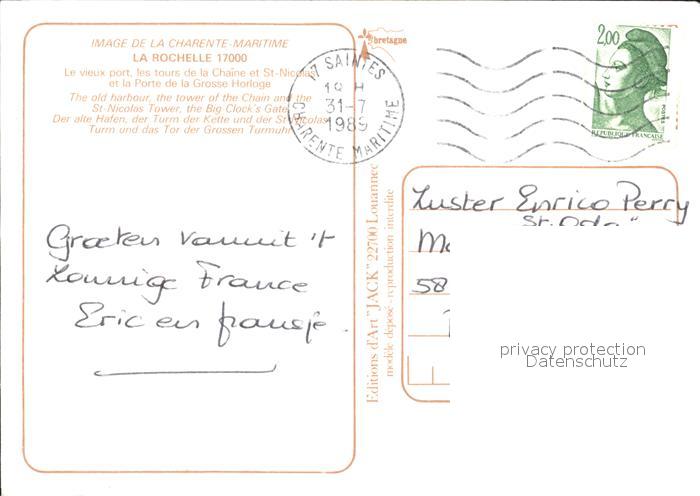 IMAGE DE LA CHARENTE-MARITIME
LA ROCHELLE 17000
Le vieux port, les tours de la Chaîne et St-Nicolas
et la Porte de la Grosse Horloge
The old harbour, the tower of the Chain and the
St-Nicolas Tower, the Big Clock's Gate
Der alte Hafen, der Turm der Kette und der St-Nicolas
Turm und das Tor der Grossen Turmuhr
Groeten vanuit 't
zonnige France
Eric en fransje.
bretagne
17 SAINTES
19 H
31-7
1989
CHARENTE MARITIME
Editions d'Art "JACK" 22700 Louannec
modèle déposé - reproduction interdite
2,00
POSTES
REPUBLIQUE FRANÇAISE
Luster Enrico Perry
St. Oda"
58
privacy protection
Datenschutz